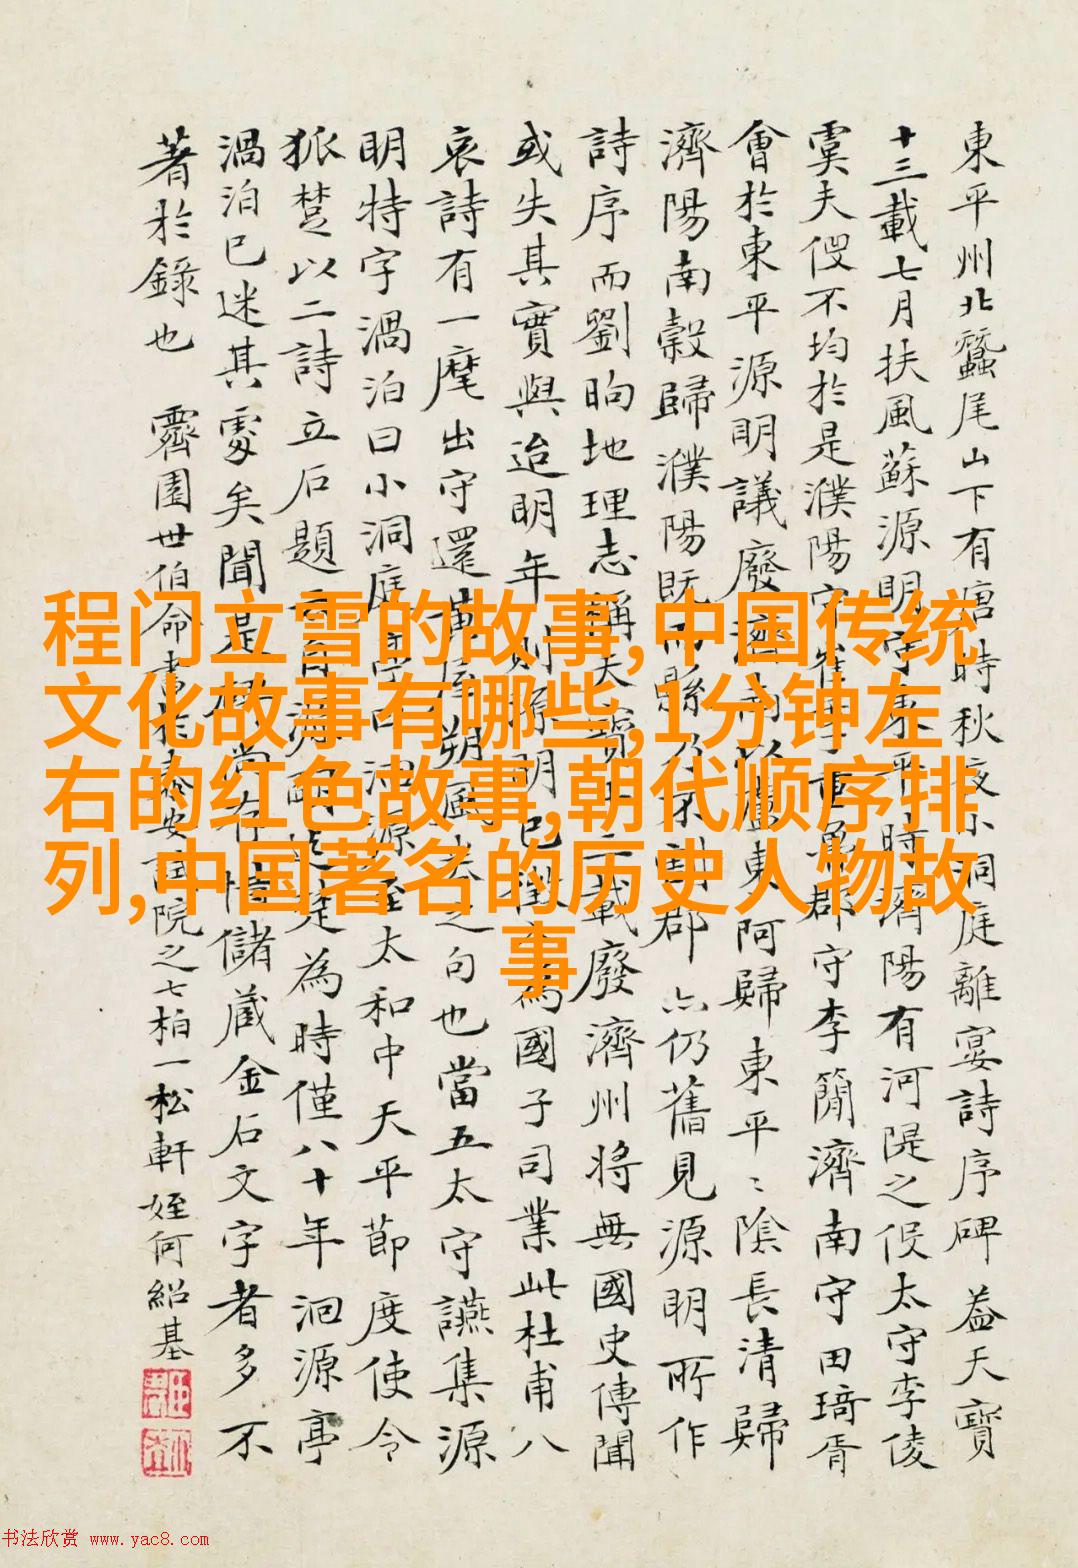 東平州北蠶尾山下有唐時秋夜小洞庭離宴詩序碑 蓋天寶
十三載七月扶風蘇源明守東平時濟陽有河隄之役太守李倰
虞夫役不均於是濮陽守崔季重魯郡守李蘭濟南守田琦胥
會於東平源明議廢濟陽以盧東阿歸東平〻陰長清歸
濟陽南穀歸濮陽既而縣郡亦仍舊見源明所作
詩序而劉昫地理志稱天寶十三載廢濟州將無國史傳聞
或失其實與迨明年則源明已為國子司業此杜甫八
哀詩有一麾出守還黃屋朔風卷之句也當五太守讌集源
明特字渦泊曰小洞庭太和中天平節度使令
狐楚以二詩立石題為時僅八十年洄源亭
渦泊已迷其處矣聞是碑儲藏金石文字者多不
著於錄也 霽園世伯命書於泰安試院之七柏一松軒姪何紹基
程门立雪的故事,中国传统
文化故事有哪些,1分钟左
右的红色故事,朝代顺序排
列,中国著名的历史人物故
事
书法欣赏 www.yac8.com